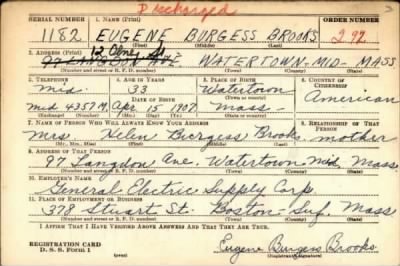 Discharged
SERIAL NUMBER 1. NAME (Print) ORDER NUMBER
1182 EUGENE BURGESS BROOKS 292
(First) (Middle) (Last)
12 Olney St
2. ADDRESS (Print)
97 LANGDON AVE WATERTOWN-MID-MASS
(Number and street or R. F. D. number) (Town) (County) (State)
3. TELEPHONE 4. AGE IN YEARS 5. PLACE OF BIRTH 6. COUNTRY OF CITIZENSHIP
Mid. 33 Watertown
DATE OF BIRTH (Town or county) American
Mid 4357M Apr. 15 1907 Mass
(Exchange) (Number) (Mo.) (Day) (Yr.) (State or country)
7. NAME OF PERSON WHO WILL ALWAYS KNOW YOUR ADDRESS 8. RELATIONSHIP OF THAT PERSON
Mrs Helen Burgess Brooks mother
(Mr., Mrs., Miss) (First) (Middle) (Last)
9. ADDRESS OF THAT PERSON
97 Langdon Ave. Watertown Mid Mass.
(Number and street or R. F. D. number) (Town) (County) (State)
10. EMPLOYER'S NAME
General Electric Supply Corp
11. PLACE OF EMPLOYMENT OR BUSINESS
378 Stuart St. Boston Suf. Mass
(Number and street or R. F. D. number) (Town) (County) (State)
I AFFIRM THAT I HAVE VERIFIED ABOVE ANSWERS AND THAT THEY ARE TRUE.
REGISTRATION CARD
D. S. S. Form 1
Eugene Burgess Brooks
(Registrant's signature)